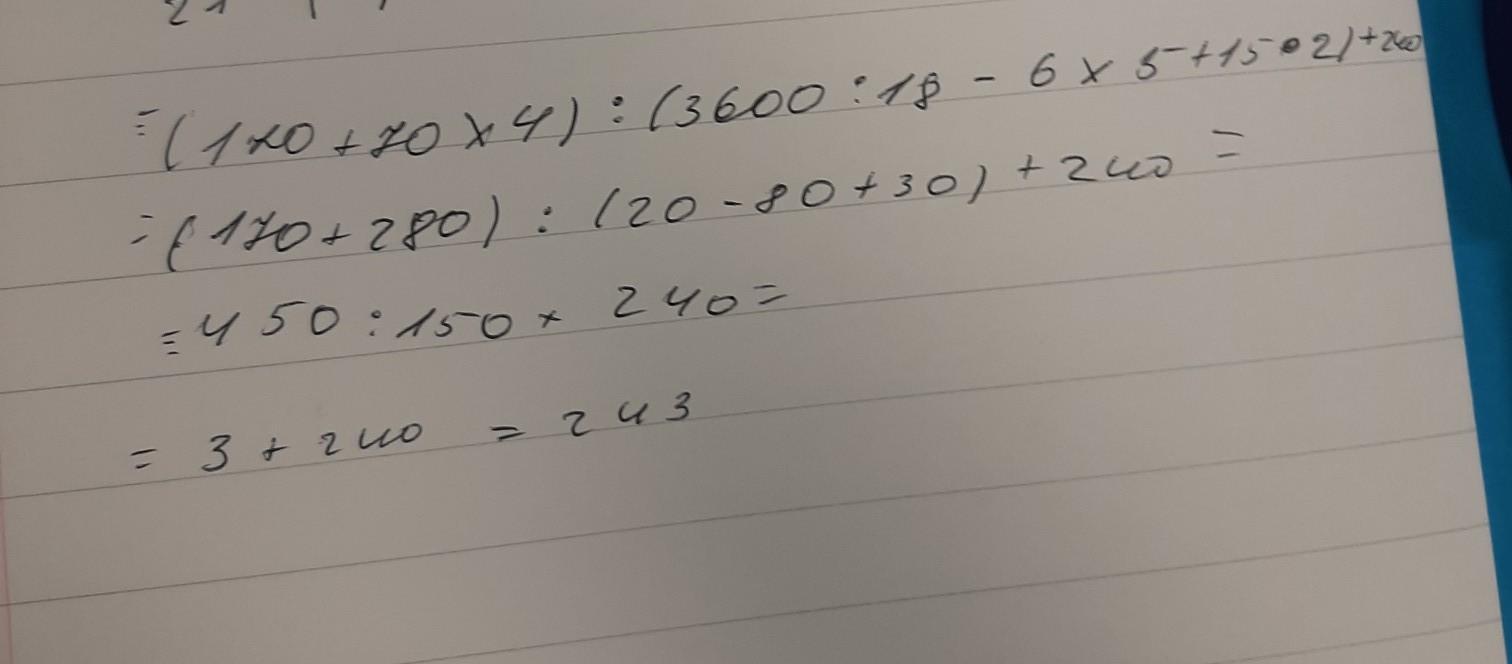 21
= (170 + 70 x 4) : (3600 : 18 - 6 x 5 + 15 • 2) + 240
= (170 + 280) : (20 - 80 + 30) + 240 =
= 450 : 150 + 240 =
= 3 + 240 = 243